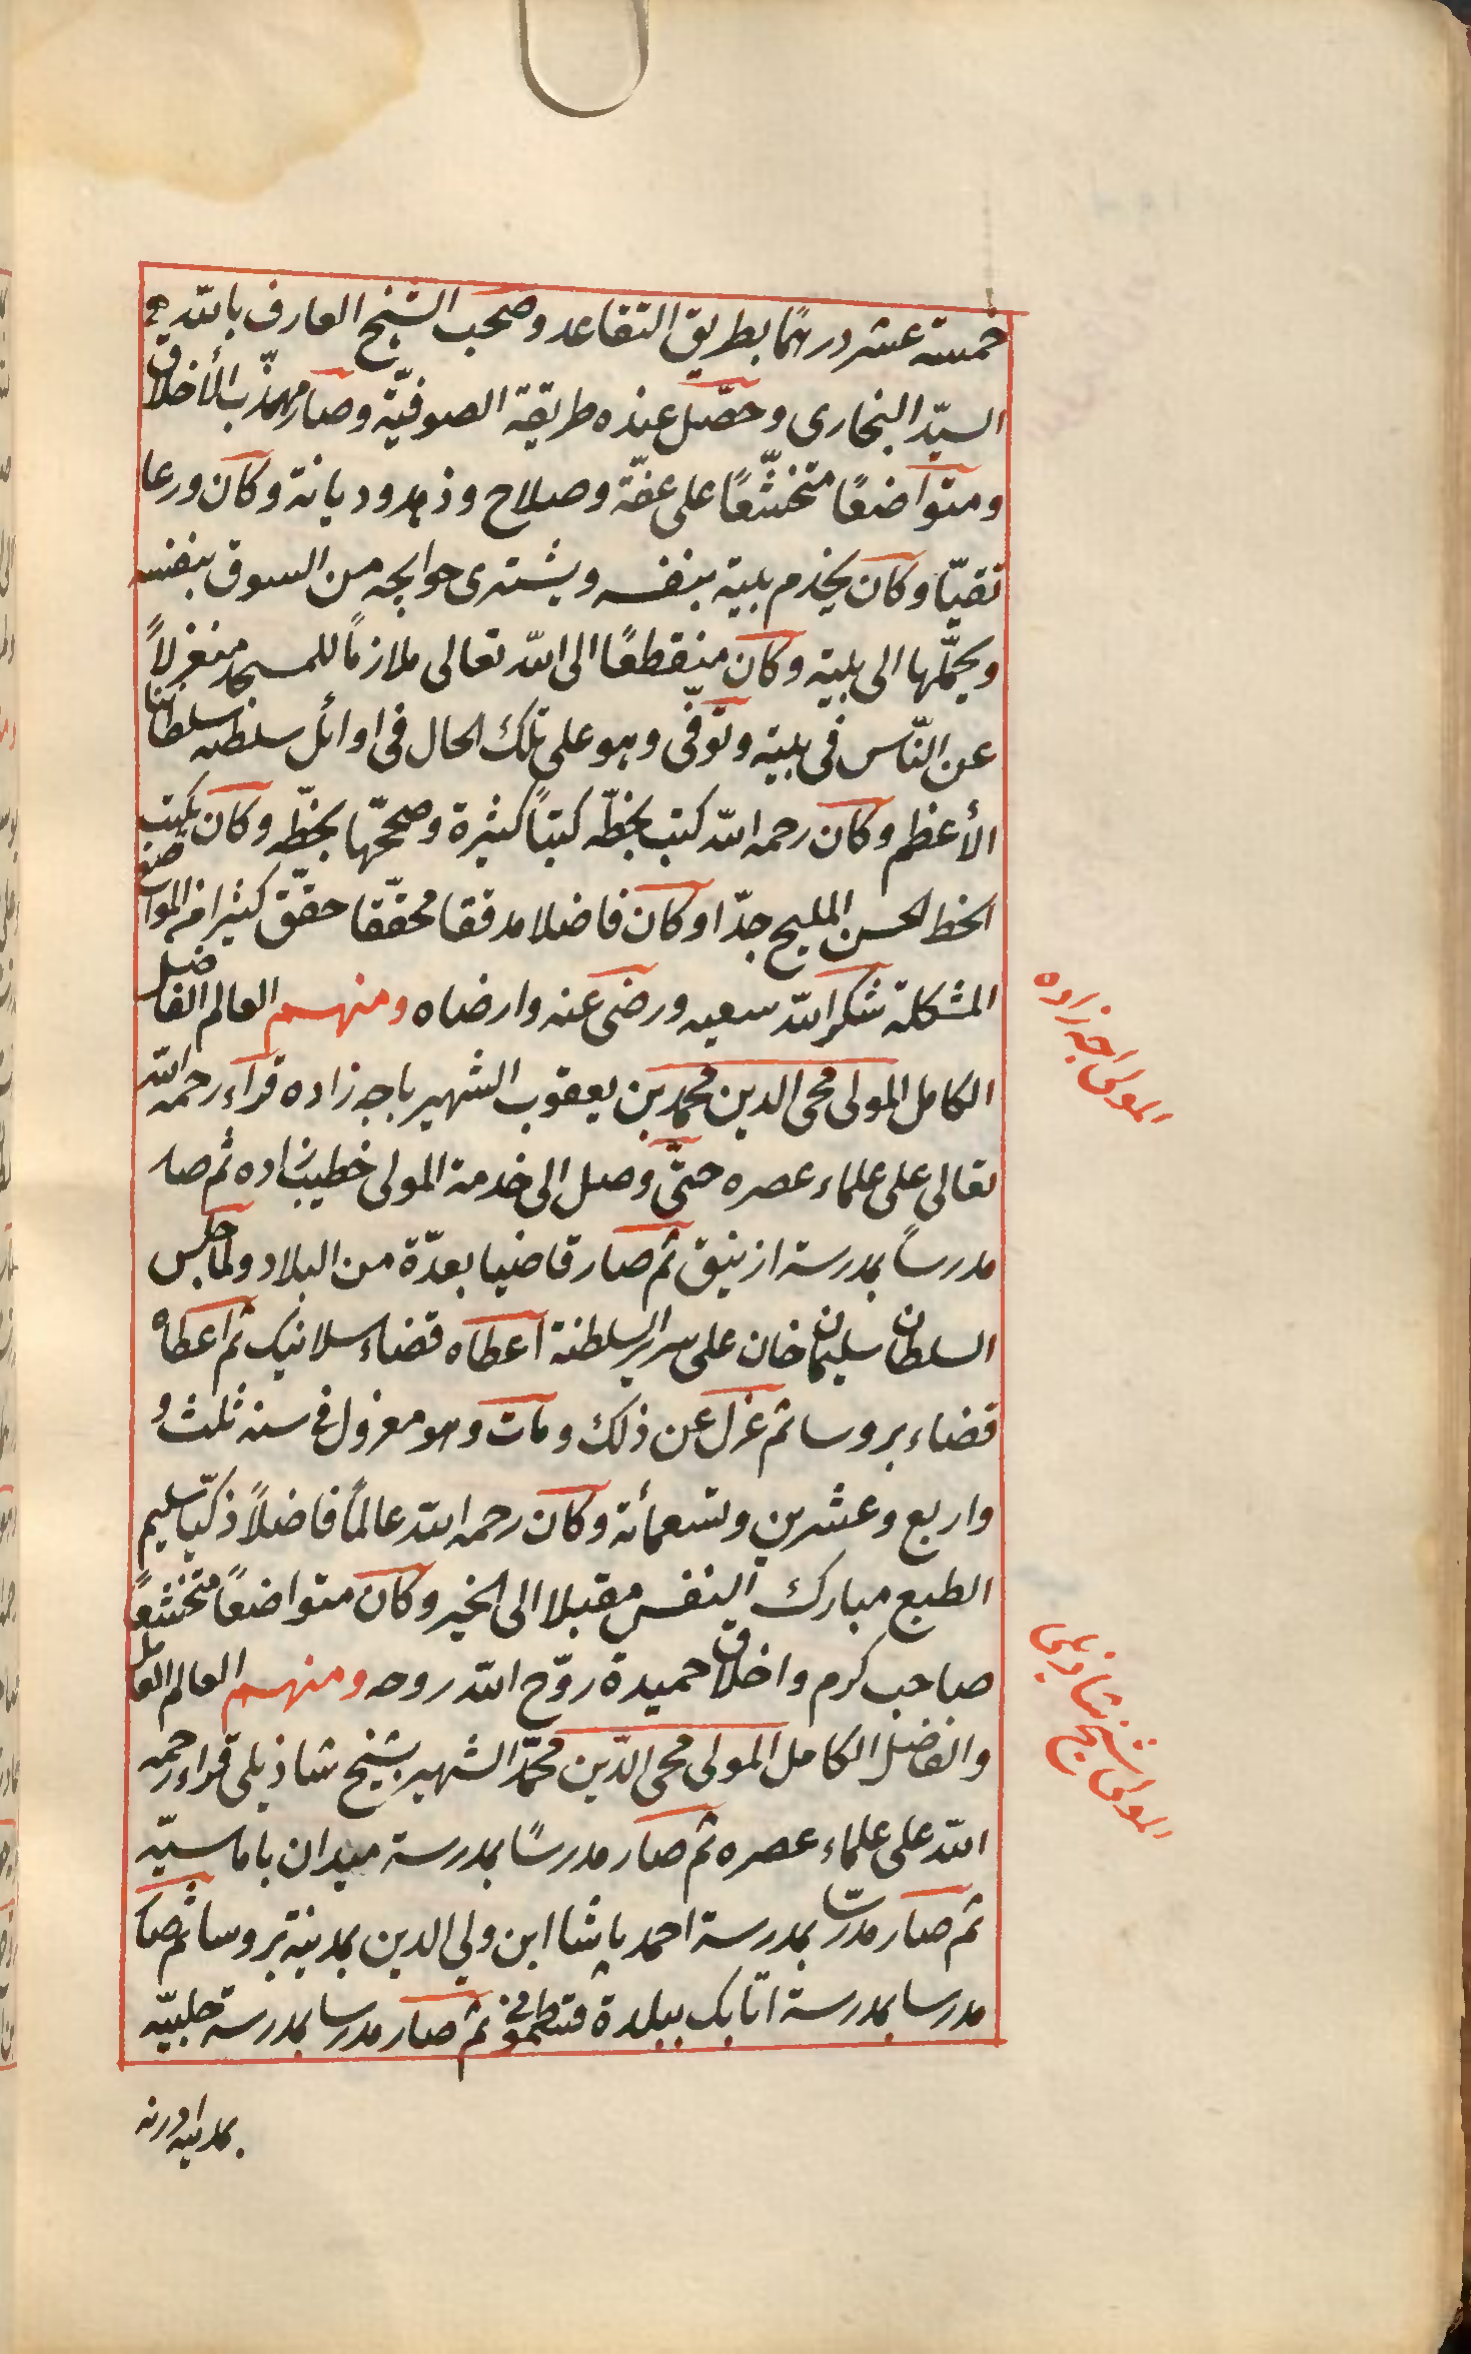 خمسة عشر درهمًا بطريق التقاعد وصحب الشيخ العارف بالله
السيّد البخارى وحصّل عنده طريقة الصوفيّة وصار مهذّب الأخلاق
ومتواضعًا متخشّعًا على عفّة وصلاح وزهد وديانة وكان ورعا
تقيّا وكان يخدم بيته بنفسه ويشترى حوايجه من السوق بنفسه
ويحمّلها الى بيته وكان منقطعًا الى الله تعالى ملازمًا للمسجد منعزلاً
عن النّاس فى بيته وتوفّى وهو على تلك الحال فى اوائل سلطنه سلطاننا
الأعظم وكان رحمه الله كتب بخطّه كتبًا كثيرة وصحّحها بخطّه وكان يكتب
الخط الحسن المليح جدّا وكان فاضلا مدققا محقّقا حقّق كثيرا من المواضع
المشكلة شكر الله سعيه ورضى عنه وارضاه ومنهم العالم الفاضل
الكامل المولى محى الدين محمد بن يعقوب الشهير باجه زاده قراء رحمه الله
تعالى على علماء عصره حتّى وصل الى خدمة المولى خطيب زاده ثم صار
مدرساً بمدرسة ازنيق ثم صار قاضيا بعدّة من البلاد ولما جلس
السلطان سليمان خان على سرير السلطنة اعطاه قضاء سلانيك ثم اعطاه
قضاء بروسا ثم عزل عن ذلك ومات وهو معزول فى سنه ثلث و
واربع وعشرين وتسعمأئة وكان رحمه الله عالمًا فاضلاً ذكيّا سليم
الطبع مبارك النفس مقبلا الى الخير وكان متواضعًا متخشعًا
صاحب كرم واخلاق حميدة روّح الله روحه ومنهم العالم العامل
والفاضل الكامل المولى محى الدّين محمّد الشهير بشيخ شاذيلى قراء رحمه
الله على علماء عصره ثم صار مدرسًا بمدرسة ميدان باماسيّه
ثم صار مدرسا بمدرسة احمد پاشا ابن ولي الدين بمدينة بروسا ثم صار
مدرسا بمدرسة اتابك ببلدة قسطمونى ثم صار مدرسا بمدرسة حلبيّه
بمدينه ادرنه
المولى اجه زاده
المولى شيخ شاذيلى